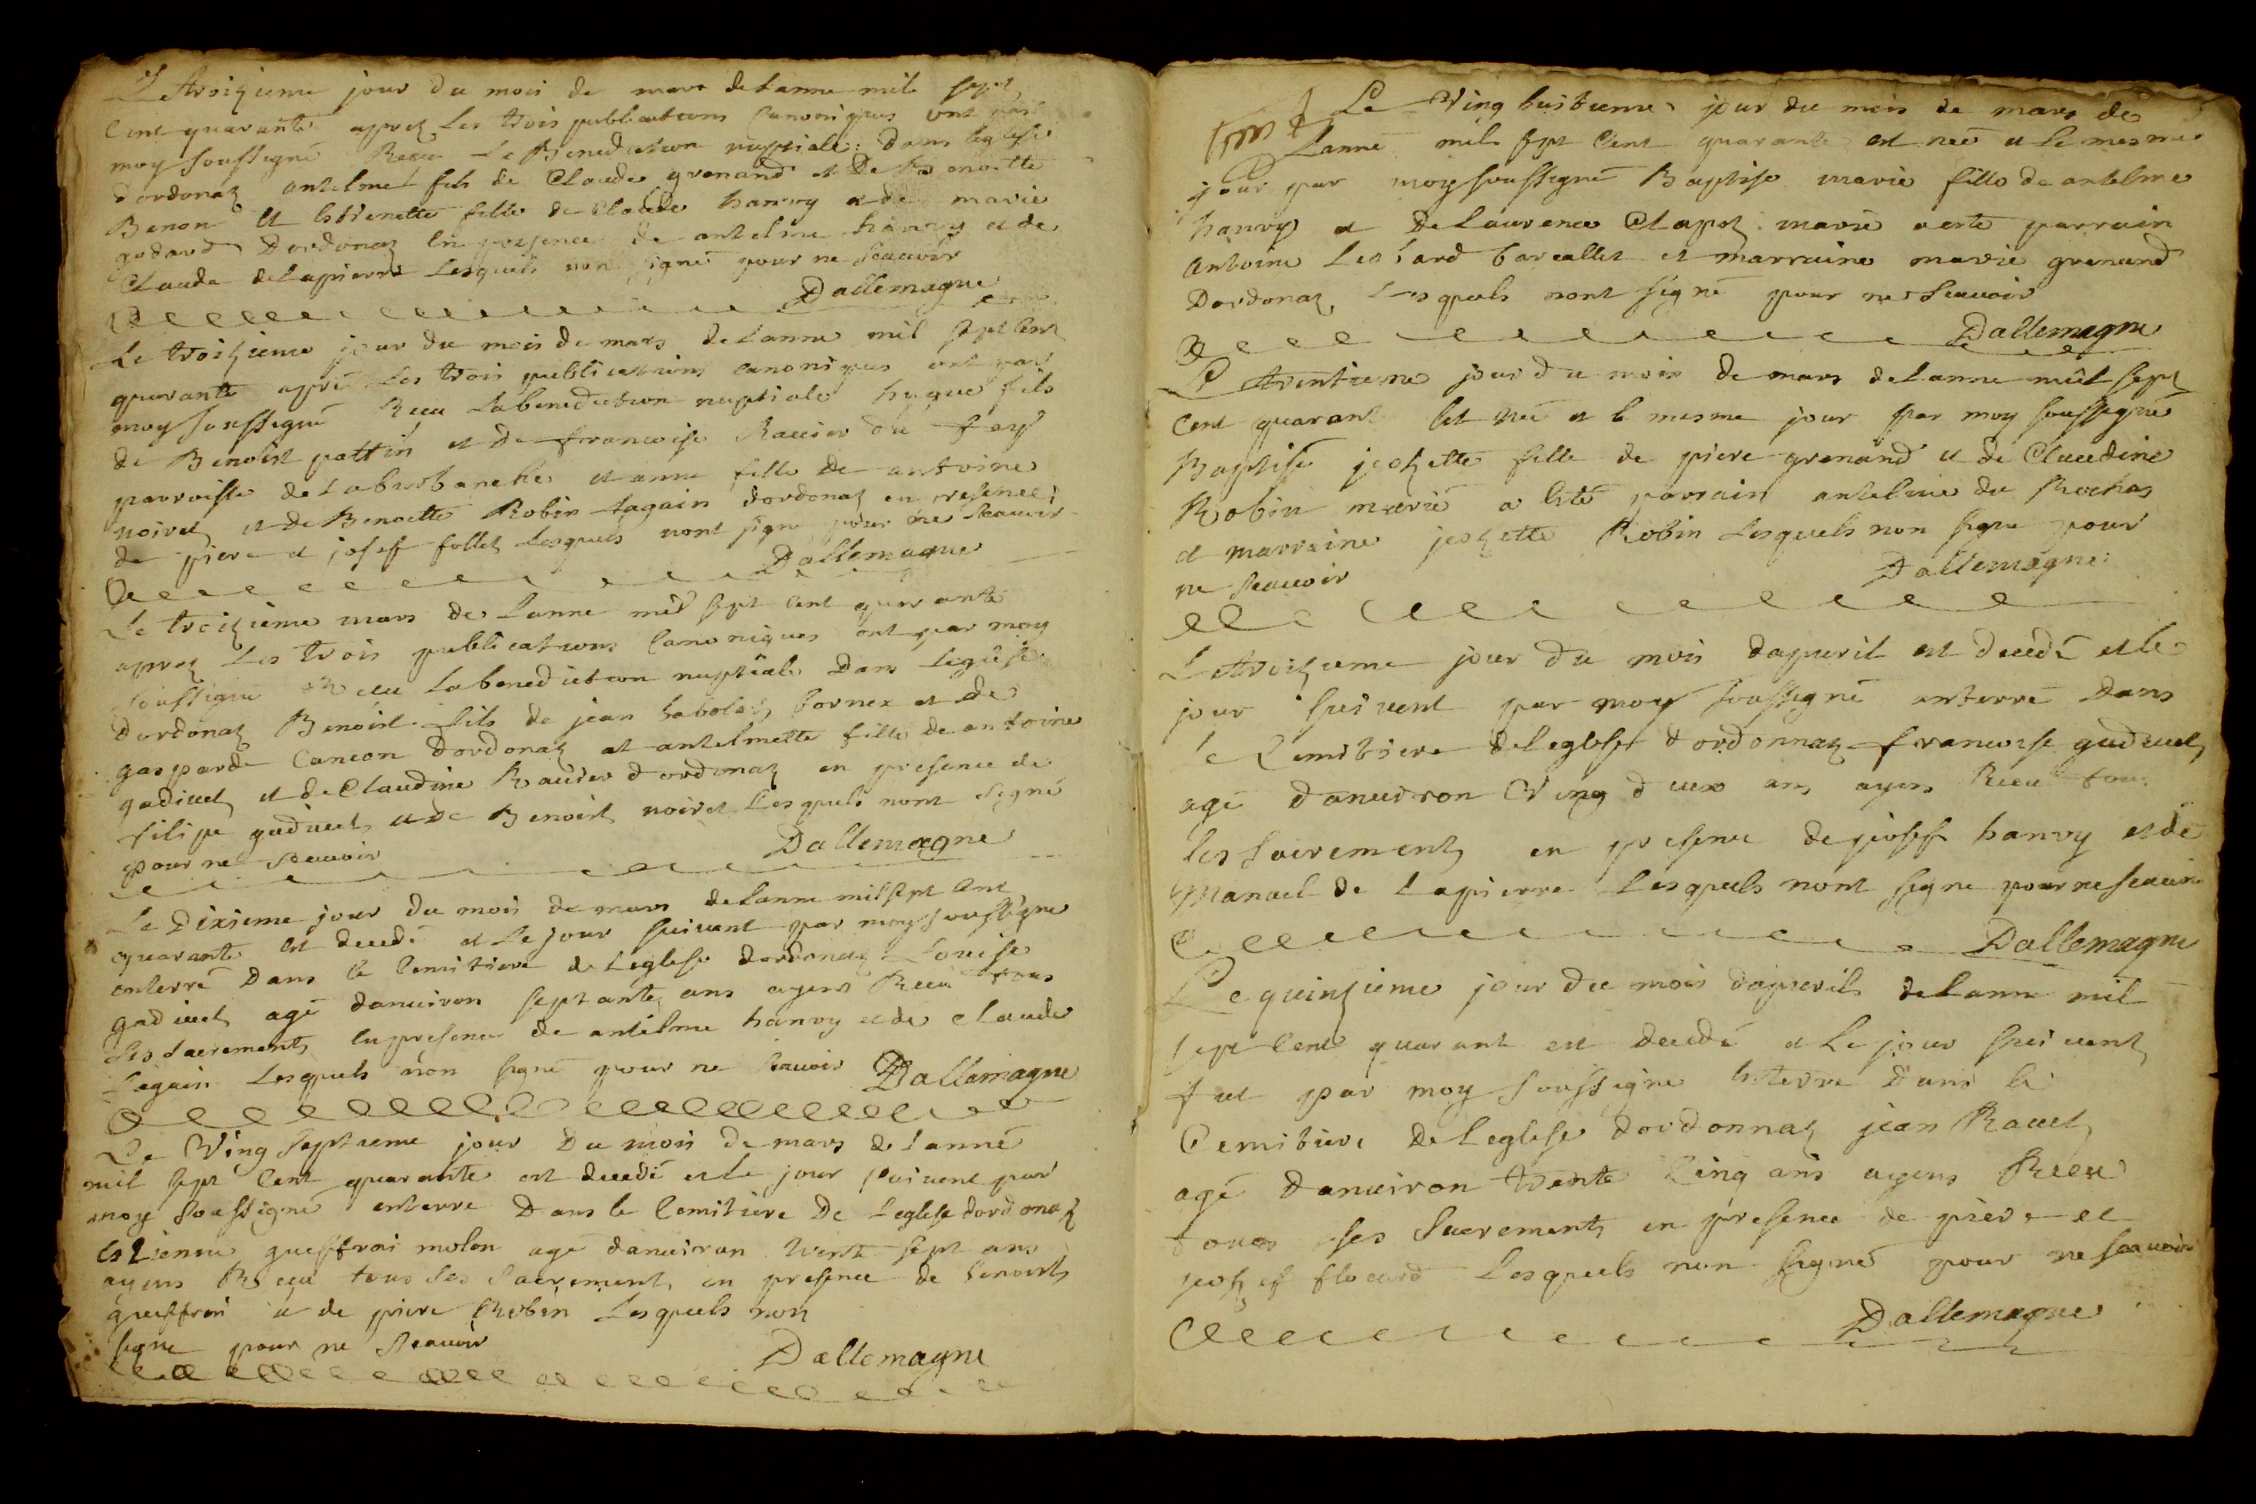 Le troizieme jour du mois de mars de lanne mil sept
Cent quarante aprez les trois publications Canoniques ont par
moy soussigné Receu La Benediction nuptiale: dans leglise
dordonaz antelme fils de Claude grenand et De Benoitte
Benon et estienette fille de Claude hanry et de marie
godard Dordonaz En presence de antelme hanry et de
Claude delapierre Lesquels non signé pour ne Scauoir
Dallemagne
Le troizieme jour du mois de mars de lanne mil sept Cent
quarante aprez Les trois publications canoniques ont par
moy soussigné Receu Labenediction nuptiale hugue fils
de Benoist pattin et De francoise Rauier du fay
parroisse de et anne fille de antoine
noiret et de Benoitte Robin dordonaz en presence
de piere et josef follet Lesquels nont signe pour ne Scauoir
Dallemagne
Le troizieme mars de Lanne mil sept Cent quarante
aprez Les trois publications Canoniques ont par moy
soussigné Receu Labenediction nuptiale Dans leglise
Dordonaz Benoist fils de jean et de
gasparde Dordonaz et antelmette fille de antoine
gudiuet et de Claudine Rauier dordonaz en presence de
filipe gudiuet et De Benoist noiret Lesquels nont signé
pour ne Scauoir
Dallemagne
Le Dixieme jour du mois de mars delanne mil sept Cent
quarante est decedé et Le jour suiuent par moy soussigne
enterré Dans le Cemitiere de Leglise dordonaz Louise
gudiuet agé danuiron septante ans ayent Receu tous
ses sacrements en presence de antelme hanry et de claude
Lesquels non signé pour ne Scauoir Dallemagne
Le Ving septieme jour Du mois De mars de lanné
mil sept Cent quarante est decedé et Le jour suiuent par
moy soussigné enterre Dans le Cemitiere De Leglise dordonaz
estienne gueffroi molon agé danuiron sept ans
ayens Receu tous ses Sacrements en presence de benoist
gueffroi et de piere Robin Lesquels non
signe pour ne Scauoir
Dallemagne
Le Ving huitieme jour du mois de mars de
Lanne mil sept Cent quarante est neé et Le mesme
jour par moy soussigné Baptise marie fille de antelme
hanry et De Laurence Clapot marié a esté parrain
antoine et marraine marie grenand
Dordonaz Lesquels nont signé pour ne Scauoir
Dallemagne
Le trentieme jour du mois de mars delanne mil sept
Cent quarant Est neé et le mesme jour par moy soussigné
Baptisé jozette fille de piere grenand et de Claudine
Robin marié a Esté parrain antelme du Rochas
et marraine jozette Robin Lesquels non signe pour
ne Scauoir
Dallemagne:
Le troizieme jour Du mois dapueril est decedé et le
jour suiuent par moy soussigné anterré Dans
le Cemitiere deleglise dordonnaz francoise gudiuet
agé danuiron Ving deux ans ayens Receu tous
les Sacrements en presence de josef hanry et de
Manuel de Lapierre Lesquels nont signe pour ne scauoir
Dallemagne
Le quinzieme jour Du mois dapueril delanne mil
sept Cent quarant est decedé et Le jour suiuent
fut par moy soussigne Enterre Dans le
Cemitiere De Leglise dordonnaz jean Rauet
agé Danuiron trente Cinq ans ayens Receu
tous ses Sacrements en presence de piere et
josef flocard Lesquels non signé pour ne scauoir
Dallemagne